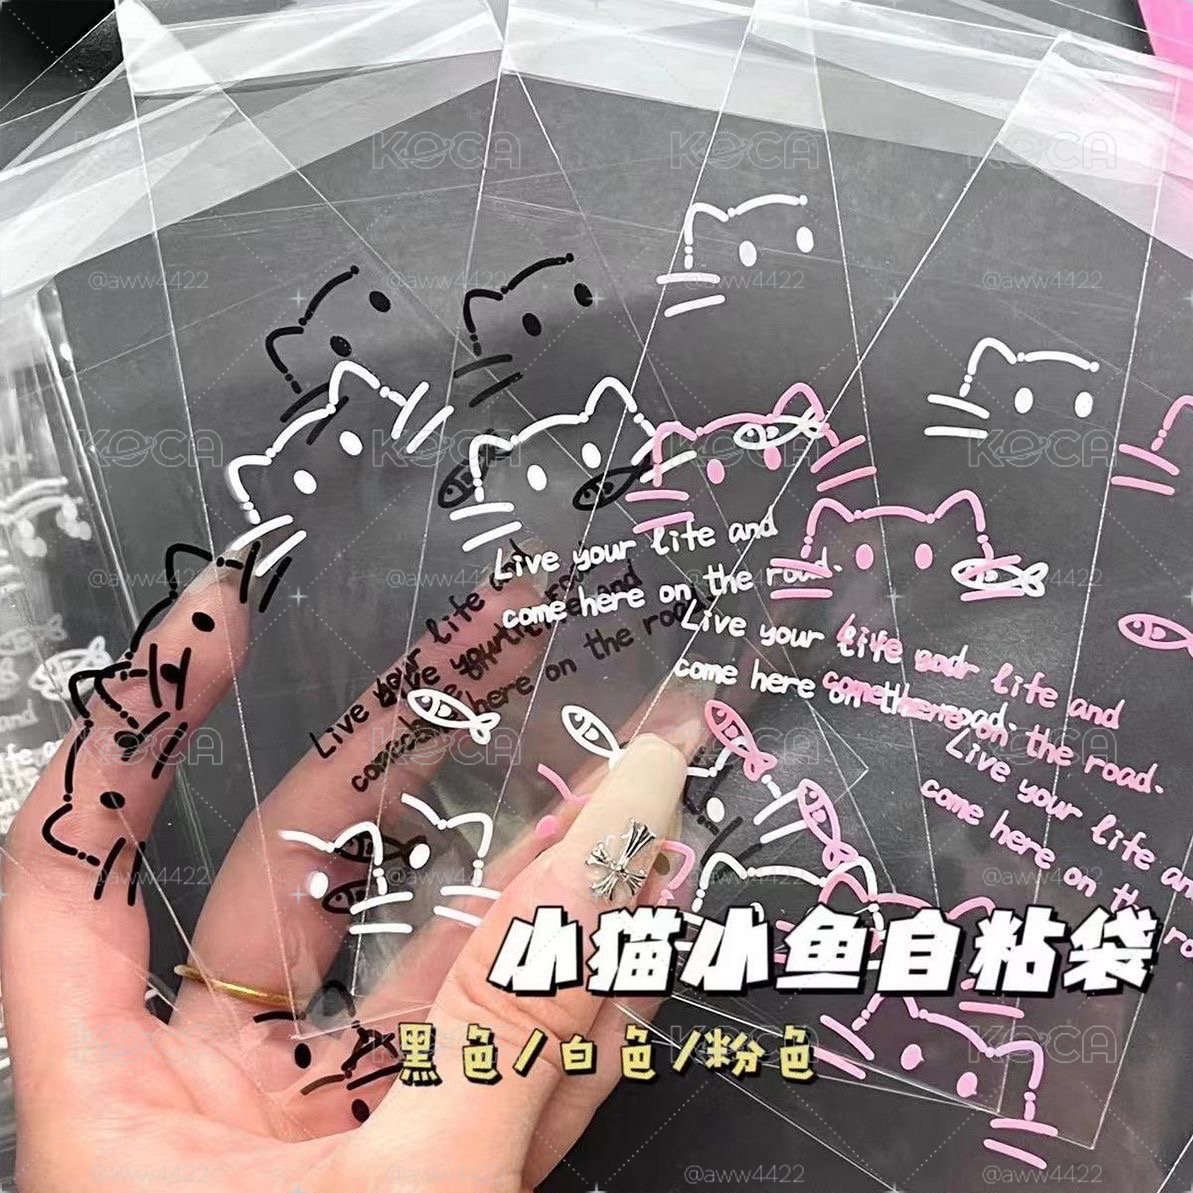 KOCA KOCA KOCA KOCA
@aww4422 @aww4422 @aww4422 @aww4422
KOCA KOCA KOCA KOCA
Live your life and
come here on the road.
Live your life and
come here on the road.
Live your life and
come here on the road.
Live your life and
come here on the road.
Live your life and
come here on the road.
Live your life and
come here on the ro
@aww4422 @aww4422 @aww4422 @aww4422
KOCA KOCA KOCA KOCA
@aww4422 @aww4422 @aww4422 @aww4422
小猫小鱼自粘袋
黑色/白色/粉色
KOCA KOCA KOCA KOCA
@aww4422 @aww4422 @aww4422 @aww4422